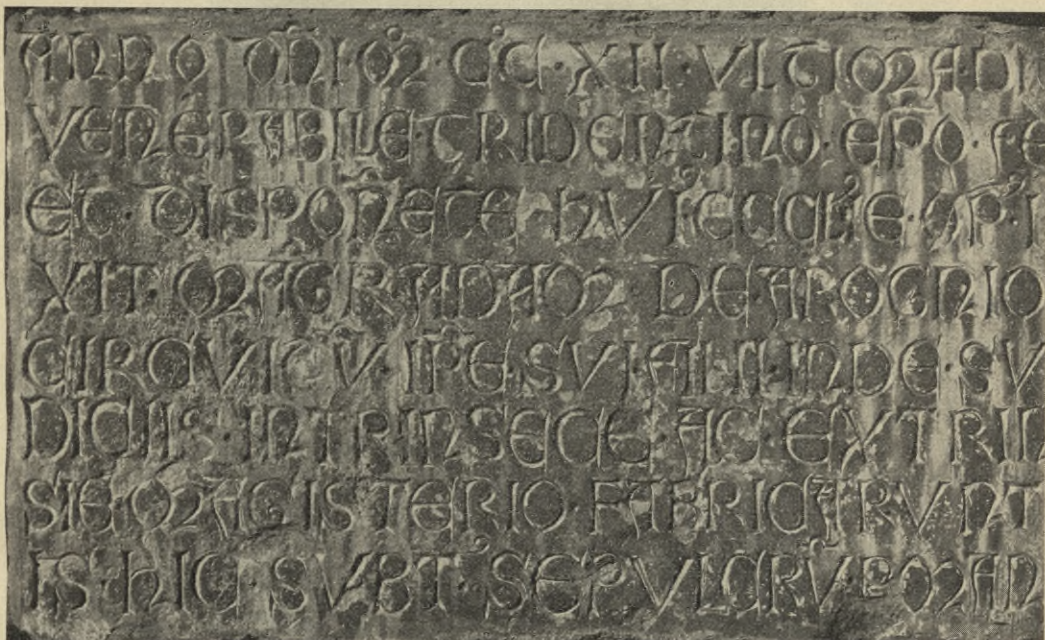 ANNO DÑI M̊ · C̊C · XII · VLTIMA · DI
VENERABILE TRIDENTINO · EP̄O · FE
ET · DISPOÑETE HVI · ECCLIE · OP · I
XIT · MAGR ADAM DE AROGNIO
CIRCVICV̄ · IP̄E · SVI · FILII · INDE · SV
DICIIS · INTRINSECE AC · EXTRIN
SIE · MAGISTERIO · FABRICARVNT
IS · HIC · SVBT · SEPVLCRV̄ P MAN